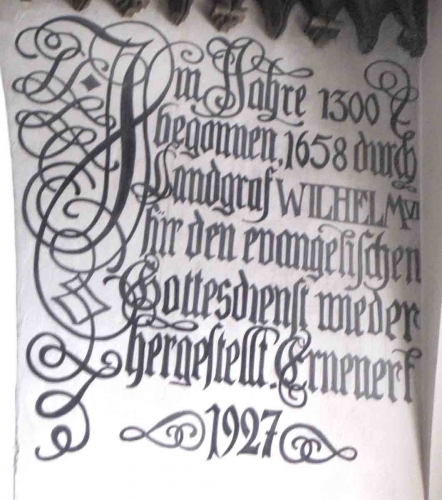 Im Jahre 1300
begonnen, 1658 durch
Landgraf WILHELM VI
für den evangelischen
Gottesdienst wieder
hergestellt. Erneuert
1927